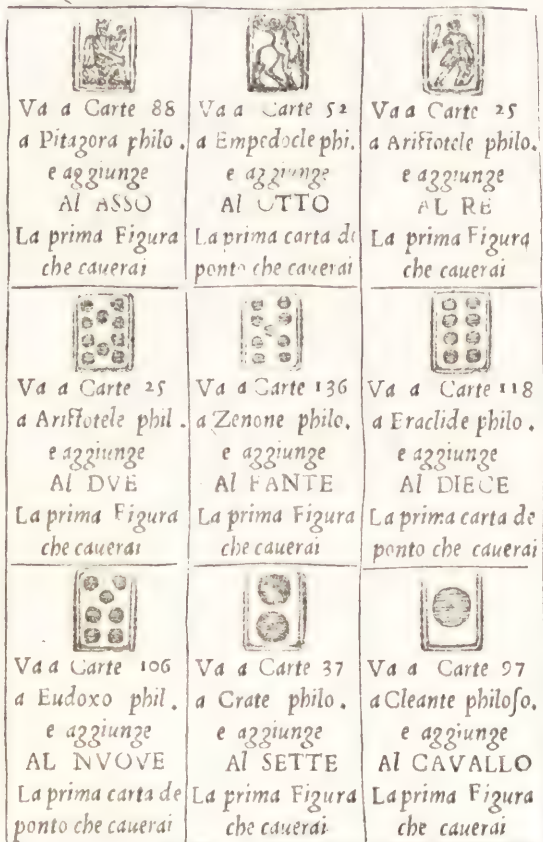 Va a Carte 88
a Pitagora philo.
e aggiunge
Al ASSO
La prima Figura
che cauerai
Va a Carte 52
a Empedocle phi.
e aggiunge
Al OTTO
La prima carta de
ponto che cauerai
Va a Carte 25
a Ariſtotele philo.
e aggiunge
AL RE
La prima Figura
che cauerai
Va a Carte 25
a Ariſtotele phil.
e aggiunge
Al DVE
La prima Figura
che cauerai
Va a Carte 136
a Zenone philo.
e aggiunge
Al FANTE
La prima Figura
che cauerai
Va a Carte 118
a Eraclide philo.
e aggiunge
Al DIECE
La prima carta de
ponto che cauerai
Va a Carte 106
a Eudoxo phil.
e aggiunge
AL NVOVE
La prima carta de
ponto che cauerai
Va a Carte 37
a Crate philo.
e aggiunge
Al SETTE
La prima Figura
che cauerai
Va a Carte 97
a Cleante philoſo.
e aggiunge
Al CAVALLO
La prima Figura
che cauerai